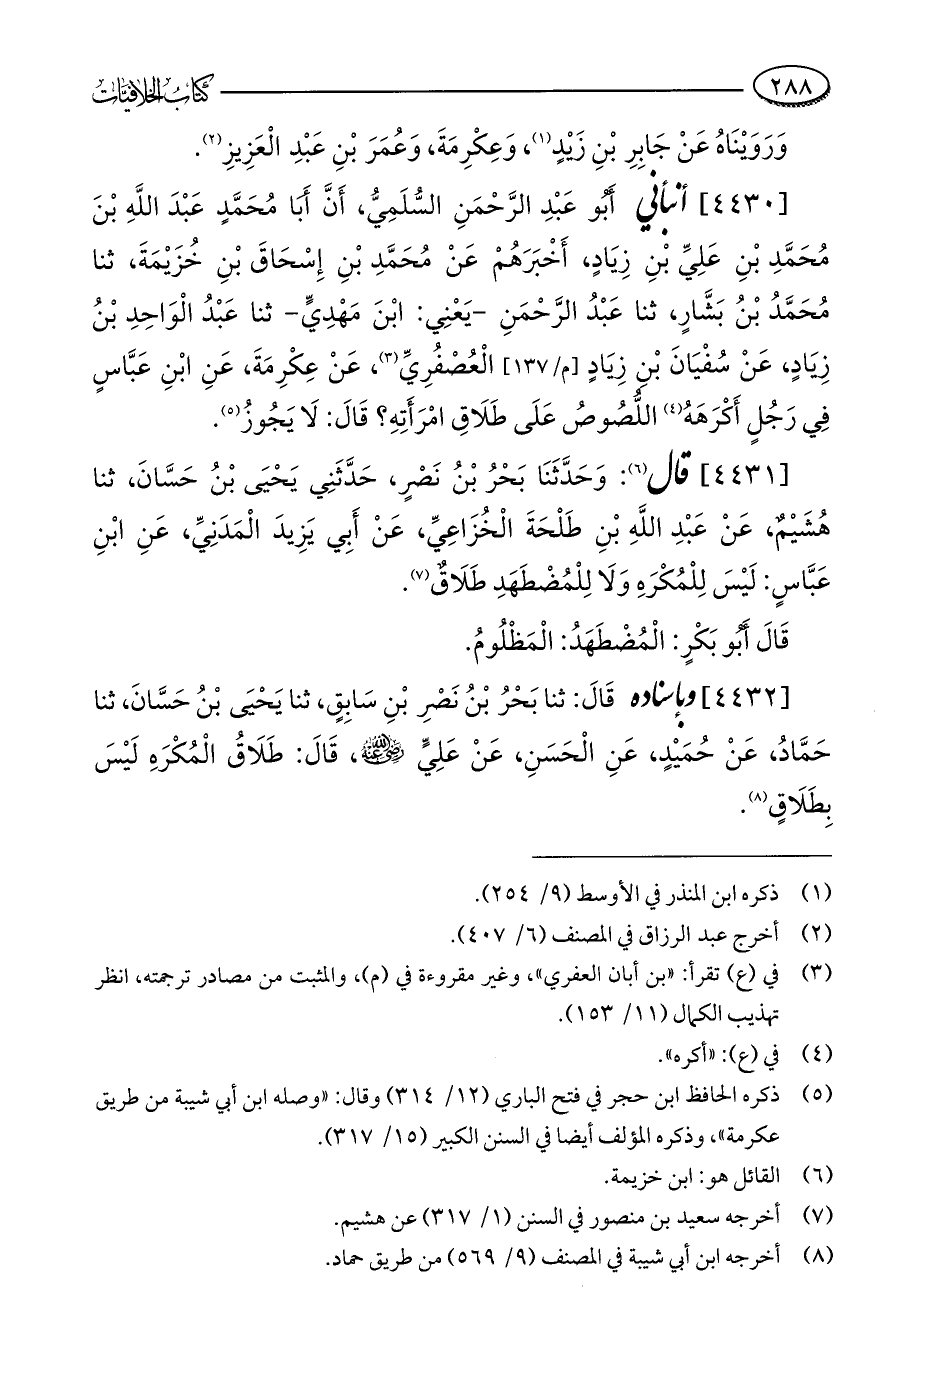 ٢٨٨ كتاب الخلافيات
وَرَوَيْنَاهُ عَنْ جَابِرِ بْنِ زَيْدٍ(١)، وَعِكْرِمَةَ، وَعُمَرَ بْنِ عَبْدِ الْعَزِيزِ(٢).
[٤٤٣٠] أنبأني أَبُو عَبْدِ الرَّحْمَنِ السُّلَمِيُّ، أَنَّ أَبَا مُحَمَّدٍ عَبْدَ اللَّهِ بْنَ
مُحَمَّدِ بْنِ عَلِيِّ بْنِ زِيَادٍ، أَخْبَرَهُمْ عَنْ مُحَمَّدِ بْنِ إِسْحَاقَ بْنِ خُزَيْمَةَ، ثنا
مُحَمَّدُ بْنُ بَشَّارٍ، ثنا عَبْدُ الرَّحْمَنِ -يَعْنِي: ابْنَ مَهْدِيٍّ- ثنا عَبْدُ الْوَاحِدِ بْنُ
زِيَادٍ، عَنْ سُفْيَانَ بْنِ زِيَادٍ [م/١٣٧] الْعُصْفُرِيِّ(٣)، عَنْ عِكْرِمَةَ، عَنِ ابْنِ عَبَّاسٍ
فِي رَجُلٍ أَكْرَهَهُ(٤) اللُّصُوصُ عَلَى طَلَاقِ امْرَأَتِهِ؟ قَالَ: لَا يَجُوزُ(٥).
[٤٤٣١] قال(٦): وَحَدَّثَنَا بَحْرُ بْنُ نَصْرٍ، حَدَّثَنِي يَحْيَى بْنُ حَسَّانَ، ثنا
هُشَيْمٌ، عَنْ عَبْدِ اللَّهِ بْنِ طَلْحَةَ الْخُزَاعِيِّ، عَنْ أَبِي يَزِيدَ الْمَدَنِيِّ، عَنِ ابْنِ
عَبَّاسٍ: لَيْسَ لِلْمُكْرَهِ وَلَا لِلْمُضْطَهَدِ طَلَاقٌ(٧).
قَالَ أَبُو بَكْرٍ: الْمُضْطَهَدُ: الْمَظْلُومُ.
[٤٤٣٢] وبإسناده قَالَ: ثنا بَحْرُ بْنُ نَصْرِ بْنِ سَابِقٍ، ثنا يَحْيَى بْنُ حَسَّانَ، ثنا
حَمَّادٌ، عَنْ حُمَيْدٍ، عَنِ الْحَسَنِ، عَنْ عَلِيٍّ رضي الله عنه، قَالَ: طَلَاقُ الْمُكْرَهِ لَيْسَ
بِطَلَاقٍ(٨).
(١) ذكره ابن المنذر في الأوسط (٩/ ٢٥٤).
(٢) أخرج عبد الرزاق في المصنف (٦/ ٤٠٧).
(٣) في (ع) تقرأ: «بن أبان العفري»، وغير مقروءة في (م)، والمثبت من مصادر ترجمته، انظر
تهذيب الكمال (١١/ ١٥٣).
(٤) في (ع): «أكره».
(٥) ذكره الحافظ ابن حجر في فتح الباري (١٢/ ٣١٤) وقال: «وصله ابن أبي شيبة من طريق
عكرمة»، وذكره المؤلف أيضا في السنن الكبير (١٥/ ٣١٧).
(٦) القائل هو: ابن خزيمة.
(٧) أخرجه سعيد بن منصور في السنن (١/ ٣١٧) عن هشيم.
(٨) أخرجه ابن أبي شيبة في المصنف (٩/ ٥٦٩) من طريق حماد.